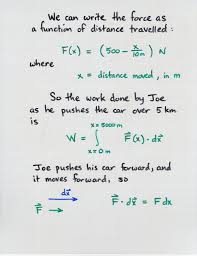 We can write the force as
a function of distance travelled:
F(x) = (500 - x/10m) N
where
x = distance moved, in m
So the work done by Joe
as he pushes the car over 5 km
is
x=5000m
W = ∫ F⃗(x)·dx⃗
x=0m
Joe pushes his car forward, and
it moves forward, so
dx⃗
F⃗ F⃗·dx⃗ = F dx